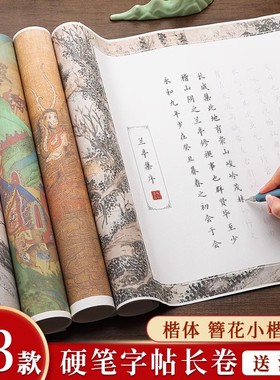 兰亭集序
永和九年岁在癸丑暮春之初会于会
稽山阴之兰亭修禊事也群贤毕至少
长咸集此地有崇山峻岭茂林
楷体 簪花小楷
3款
硬笔字帖长卷
送